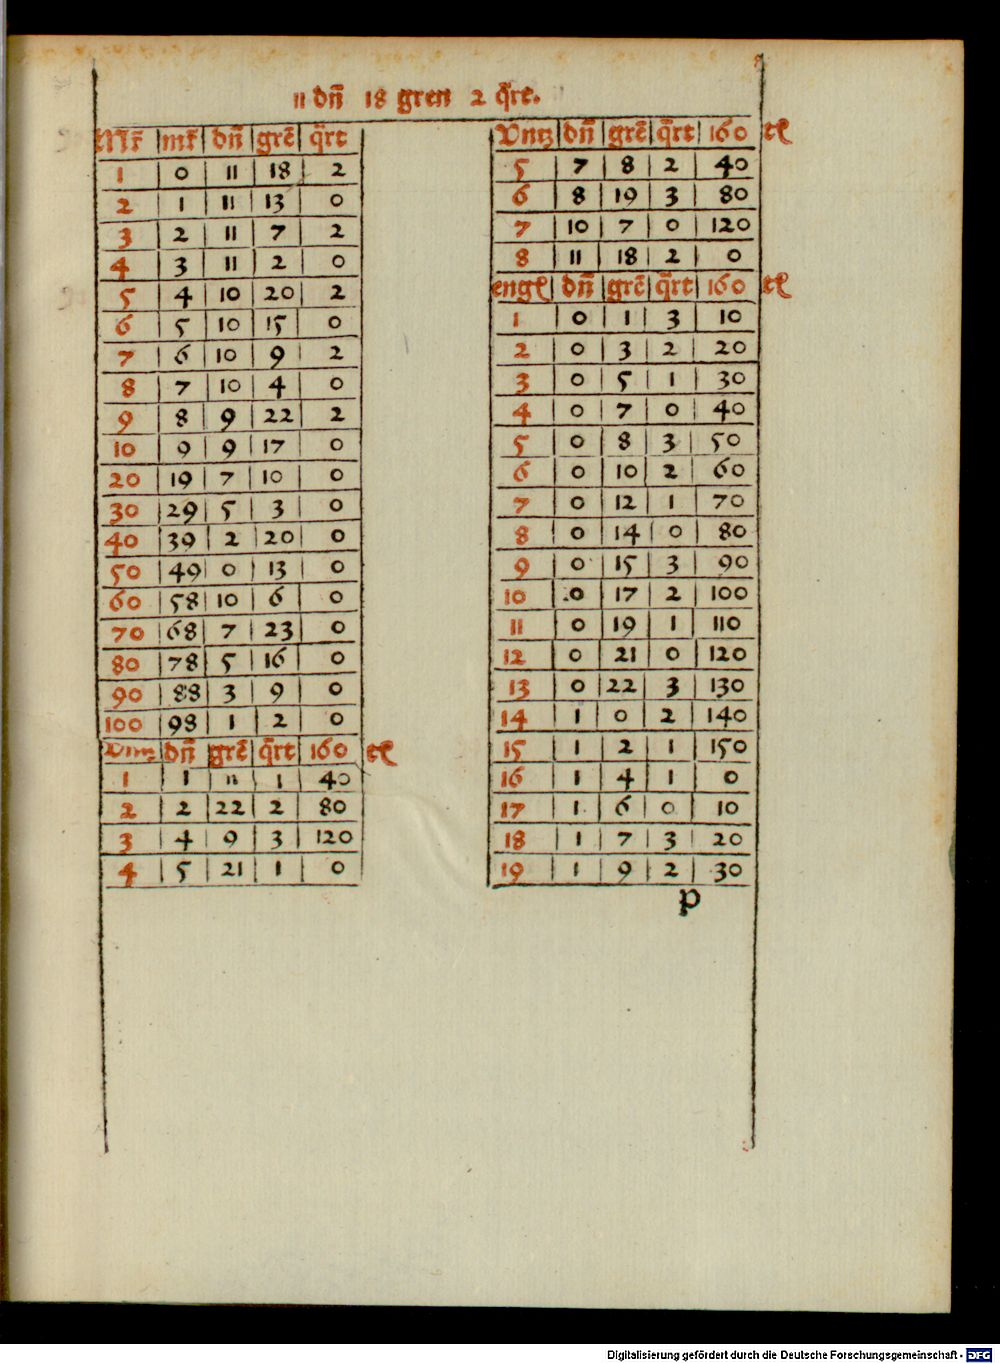 11 dn̄ 18 gren 2 q̄rt.
Mr̄ mr̄ dn̄ grē q̄rt
1 0 11 18 2
2 1 11 13 0
3 2 11 7 2
4 3 11 2 0
5 4 10 20 2
6 5 10 15 0
7 6 10 9 2
8 7 10 4 0
9 8 9 22 2
10 9 9 17 0
20 19 7 10 0
30 29 5 3 0
40 39 2 20 0
50 49 0 13 0
60 58 10 6 0
70 68 7 23 0
80 78 5 16 0
90 88 3 9 0
100 98 1 2 0
Vntz dn̄ grē q̄rt 160 tl
1 1 11 1 40
2 2 22 2 80
3 4 9 3 120
4 5 21 1 0
Vntz dn̄ grē q̄rt 160 tl
5 7 8 2 40
6 8 19 3 80
7 10 7 0 120
8 11 18 2 0
engl dn̄ grē q̄rt 160 tl
1 0 1 3 10
2 0 3 2 20
3 0 5 1 30
4 0 7 0 40
5 0 8 3 50
6 0 10 2 60
7 0 12 1 70
8 0 14 0 80
9 0 15 3 90
10 0 17 2 100
11 0 19 1 110
12 0 21 0 120
13 0 22 3 130
14 1 0 2 140
15 1 2 1 150
16 1 4 1 0
17 1 6 0 10
18 1 7 3 20
19 1 9 2 30
p
Digitalisierung gefördert durch die Deutsche Forschungsgemeinschaft - DFG